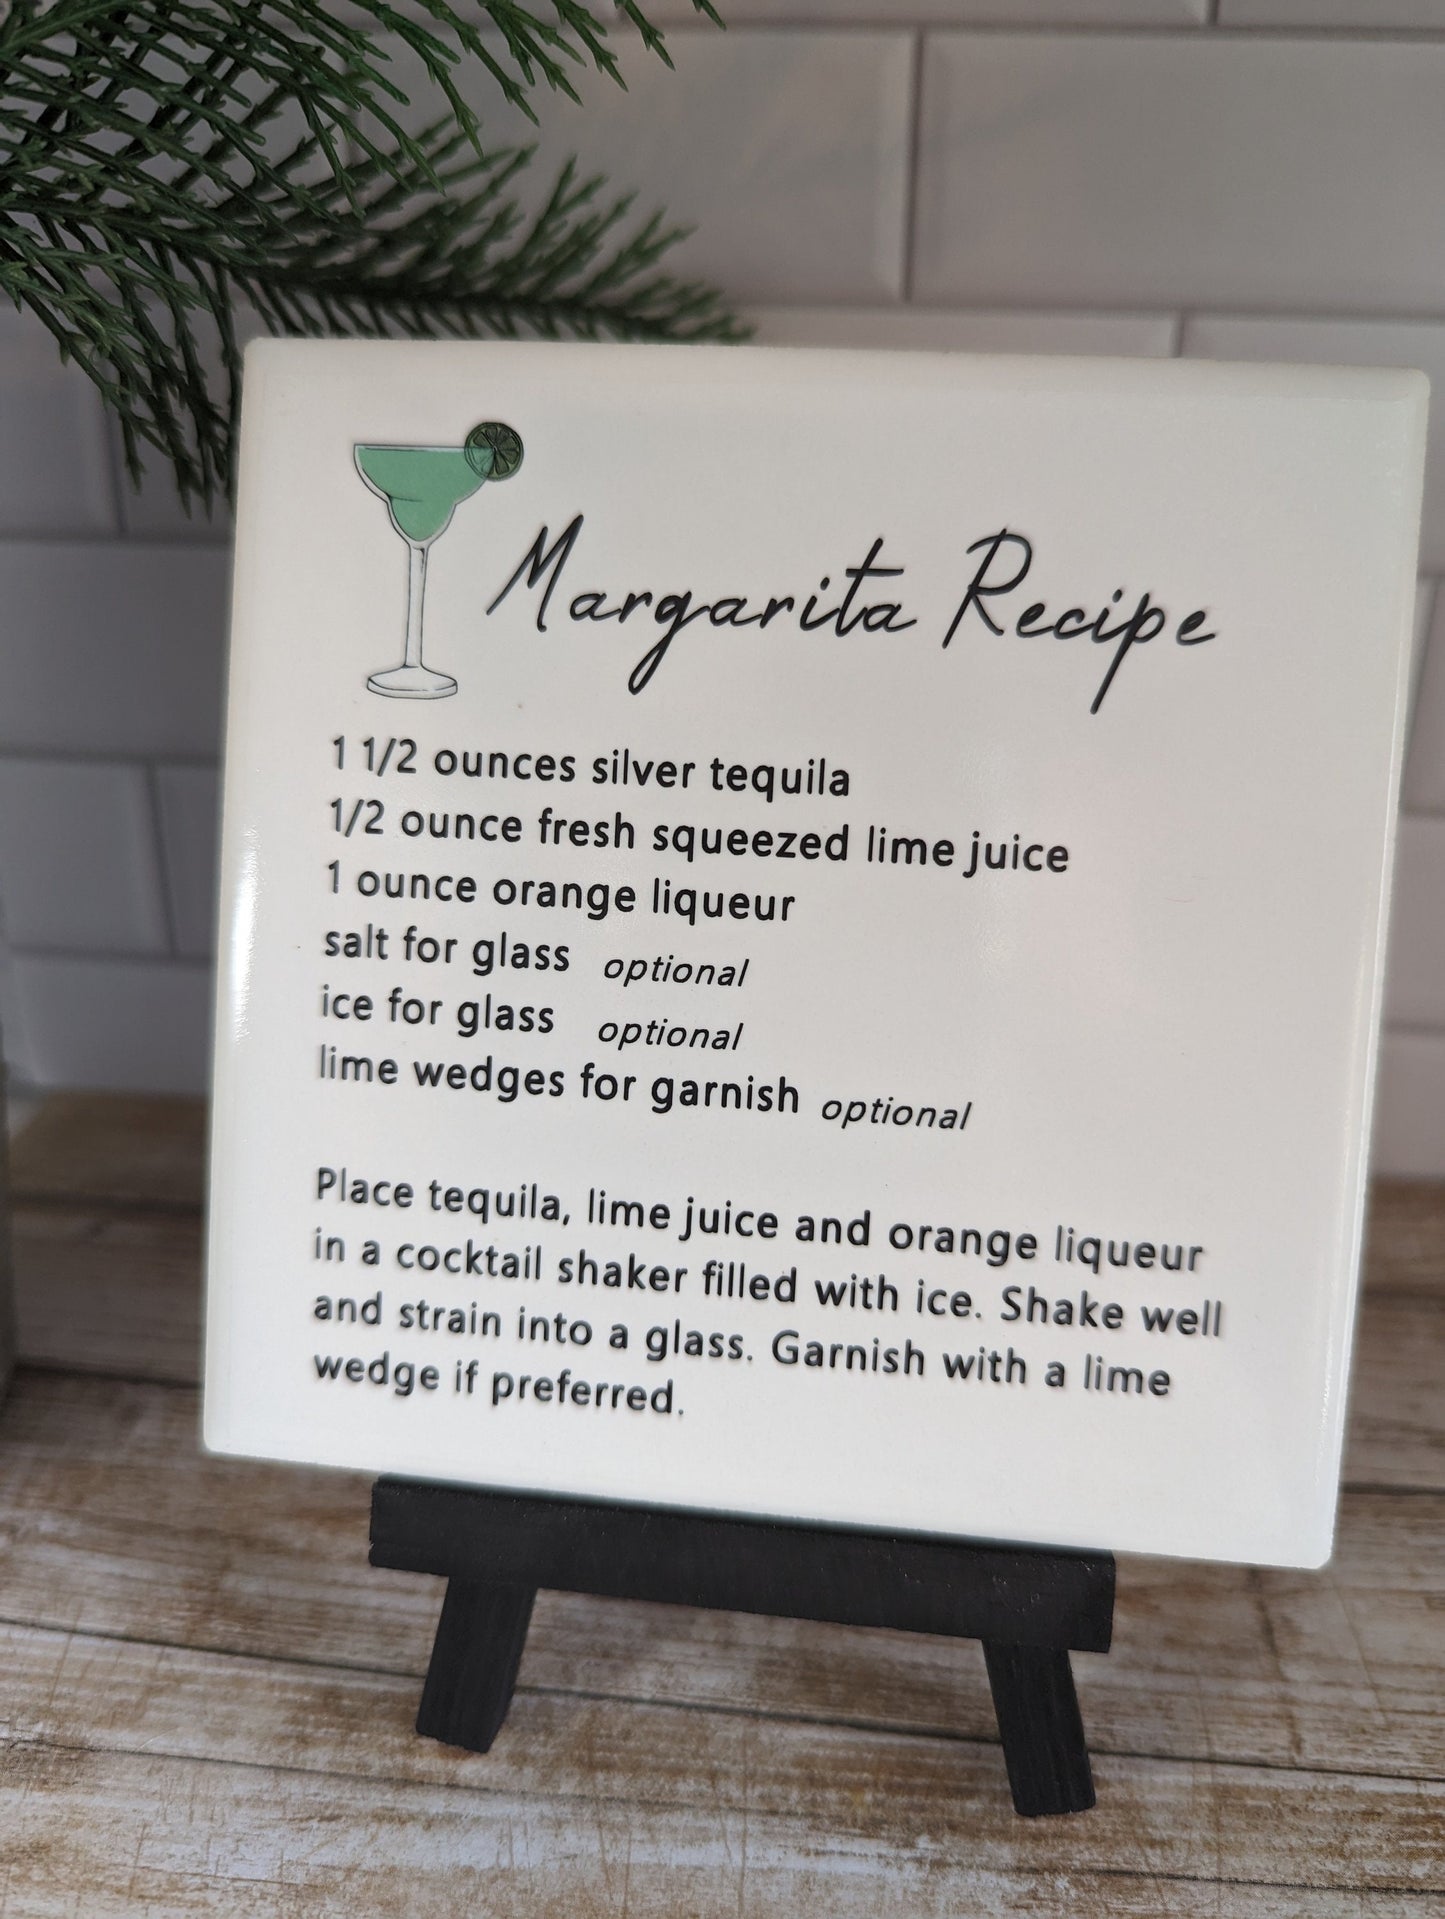 Margarita Recipe
1 1/2 ounces silver tequila
1/2 ounce fresh squeezed lime juice
1 ounce orange liqueur
salt for glass optional
ice for glass optional
lime wedges for garnish optional
Place tequila, lime juice and orange liqueur
in a cocktail shaker filled with ice. Shake well
and strain into a glass. Garnish with a lime
wedge if preferred.